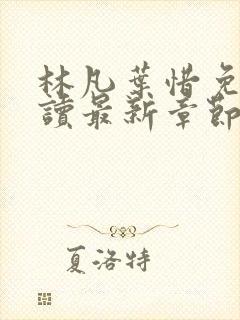 林凡葉惜免
讀最新章節
夏洛特